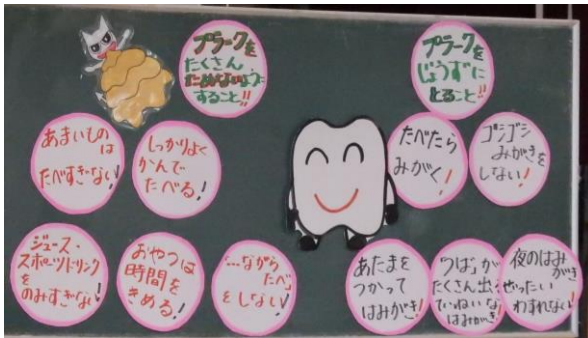 プラークを
たくさん
ためないように
すること!!
プラークを
じょうずに
とること!!
あまいもの
は
たべすぎない!
しっかりよく
かんで
たべる!
たべたら
みがく!
ゴシゴシ
みがきを
しない!
ジュース・
スポーツドリンク
を
のみすぎない!
おやつは
時間を
きめる!
…ながら
たべ
をしない!
あたまを
つかって
はみがき!
「つば」が
たくさん出る
ていねいな
はみがき!
夜のはみ
がき
ぜったい
わすれない!